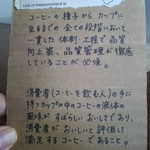 コーヒーの種子から カップに
至るまでの 全ての段階において、
一貫した 体制・工程で 品質
向上策、品質管理が 徹底
していることが 必須。
消費者 (コーヒーを飲む人) の手に
持つカップの中のコーヒーの液体の
風味が すばらしい おいしさであり、
消費者が おいしいと 評価して
満足する コーヒーであること。